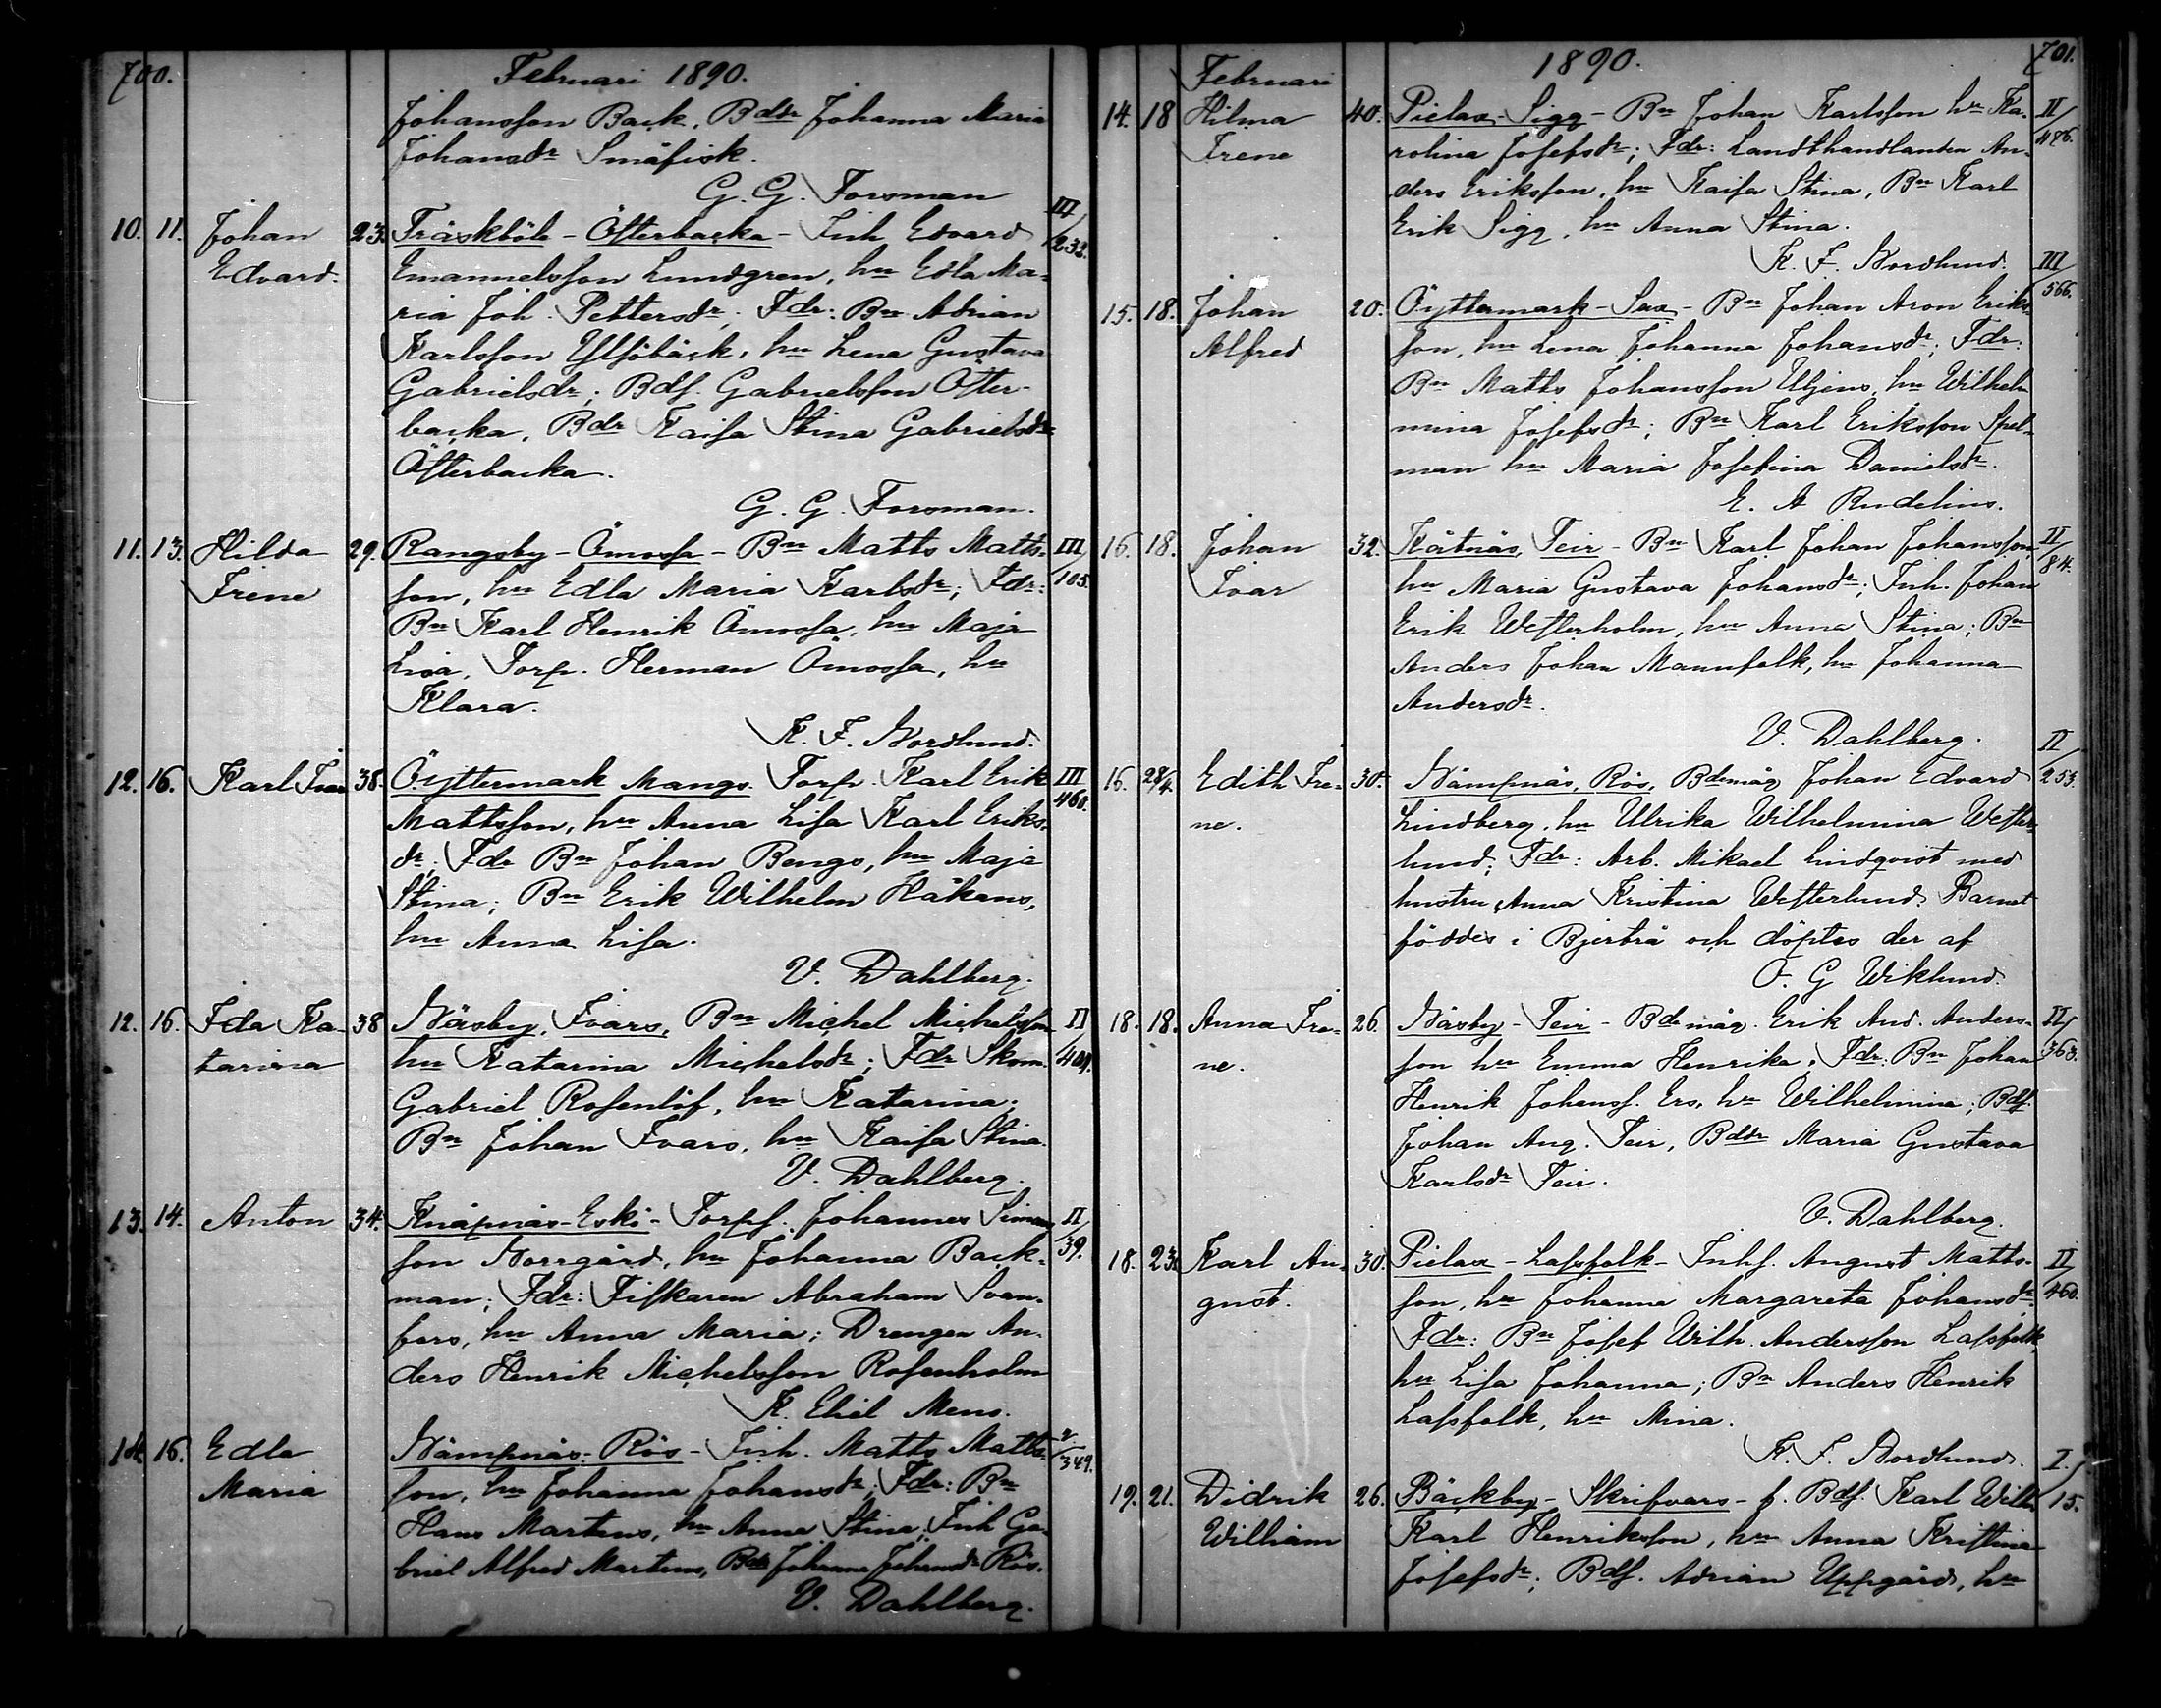 700.
Februari 1890.
Johansson Back, Bddr Johanna Maria
Johansdr Småfisk.
G. G. Forsman
10. 11. Johan 23. Träskböle - Österbacka - Inh. Edvard III
Edvard. Emanuelsson Lundgren, hu Edla Ma- 232.
ria Joh. Pettersdr; Fdr: Bn Adrian
Karlsson Ylfsbäck, hu Lena Gustava
Gabrielsdr; Bdf. Gabrielsson Öster-
backa, Bdr Kaisa Stina Gabrielsdr
Österbacka.
G. G. Forsman.
11. 13. Hilda 29. Rangsby - Ömossa - Bn Matts Matts- III
Irene son, hu Edla Maria Karlsdr; Fdr: 105.
Bn Karl Henrik Ömossa, hu Maja
Lisa, Torp. Herman Ömossa, hu
Klara.
K. F. Nordlund.
12. 16. Karl Ivar 38. Öyttermark Mangs. Torp. Karl Erik III
Mattsson, hu Anna Lisa Karl Eriks- 460.
dr; Fdr Bn Johan Bengs, hu Maja
Stina; Bn Erik Wilhelm Håkans,
hu Anna Lisa.
V. Dahlberg.
12. 16. Ida Ka- 38 Näsby, Ivars, Bn Michel Michelsson II
tarina hu Katarina Michelsdr; Fdr Skom. 404.
Gabriel Rosenlöf, hu Katarina;
Bn Johan Ivars, hu Kaisa Stina.
V. Dahlberg.
13. 14. Anton 34. Knåpnäs-Eskö - Torpf. Johannes Simons- II
son Norrgård, hu Johanna Back- 39.
man; Fdr: Fiskaren Abraham Svan-
fors, hu Anna Maria; Drengen An-
ders Henrik Michelsson Rosenholm
K. Eliel Mens.
14. 16. Edla Nämpnäs - Rös - Inh. Matts Matts- 2
Maria son, hu Johanna Johansdr; Fdr: Bn 349.
Hans Martens, hu Anna Stina; Inh Ga-
briel Alfred Martens, Bddr Johanna Johansdr Rös.
V. Dahlberg.
701.
Februari 1890.
14. 18 Hilma 40. Pielax - Sigg - Bn Johan Karlsson hu Ka- II
Irene rolina Josefsdr; Fdr: Landthandlanden An- 486.
ders Eriksson, hu Kaisa Stina, Bn Karl
Erik Sigg, hu Anna Stina.
K. F. Nordlund.
15. 18. Johan 20. Öyttermark - Sax - Bn Johan Aron Eriks- III
Alfred son, hu Lena Johanna Johansdr; Fdr: 566.
Bn Matts Johansson Utjens, hu Wilhel-
mina Josefsdr; Bn Karl Eriksson Spel-
man hu Maria Josefina Danielsdr.
E. A Rudelius.
16. 18. Johan 32. Kåtnäs, Teir - Bn Karl Johan Johansson, II
Ivar hu Maria Gustava Johansdr; Inh. Johan 84.
Erik Westerholm, hu Anna Stina; Bn
Anders Johan Mannfolk, hu Johanna
Andersdr.
V. Dahlberg.
16. 28/4 Edith Ire- 30. Nämpnäs, Rös, Bdemåg Johan Edvard II
ne. Lindberg, hu Ulrika Wilhelmina Wester- 253.
lund; Fdr: Arb. Mikael Lindqvist med
hustru Anna Kristina Westerlund. Barnet
föddes i Bjertrå och döptes der af
O. G Wiklund.
18. 18. Anna Ire- 26. Näsby - Teir - Bdemåg. Erik And. Anders- II
ne. son hu Emma Henrika; Fdr: Bn Johan 363.
Henrik Johanss. Ers, hu Wilhelmina; Bdf.
Johan Aug. Teir, Bddr Maria Gustava
Karlsdr Teir.
V. Dahlberg.
18. 23. Karl Au- 30. Pielax - Lassfolk - Inhf. August Matts- II
gust. son, hu Johanna Margareta Johansdr. 460.
Fdr: Bn Josef Wilh. Andersson Lassfolk,
hu Lisa Johanna; Bn Anders Henrik
Lassfolk, hu Mina.
K. F. Nordlund.
19. 21. Didrik 26. Bäckby - Skrifvars - f. Bdf. Karl Wilh. I.
William Karl Henriksson, hu Anna Kristina 15.
Josefsdr; Bdf. Adrian Uppgård, hu